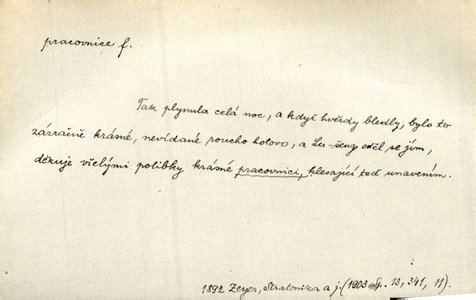 pracovnice f.
Tak plynula celá noc, a když hvězdy bledly, bylo to
zázračně krásné, nevídané roucho hotovo, a Lu-šeng oděl se jím,
děkuje vřelými polibky krásné pracovnici, klesající teď unavením.
1892 Zeyer, Stratonika a j. (1903 Sp. 13, 341, 11).